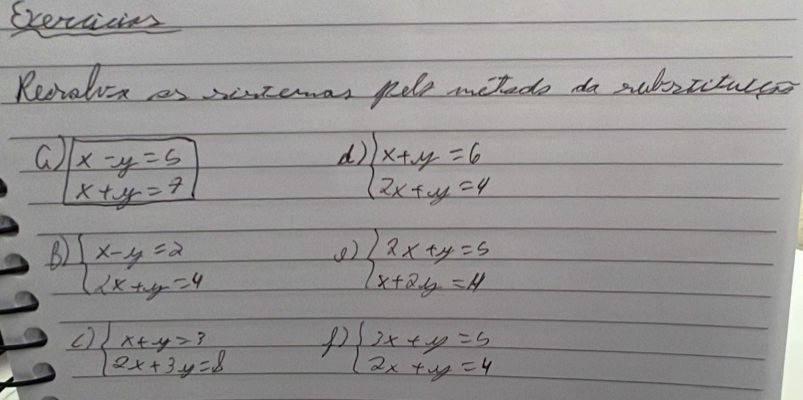 Exercícios
Resolva os sistemas pelo método da substituição
a) x - y = 5
x + y = 7
d) x + y = 6
2x + y = 4
B) x - y = 2
2x + y = 4
e) 2x + y = 5
x + 2y = 4
c) x + y = 3
2x + 3y = 8
f) 3x + y = 5
2x + y = 4